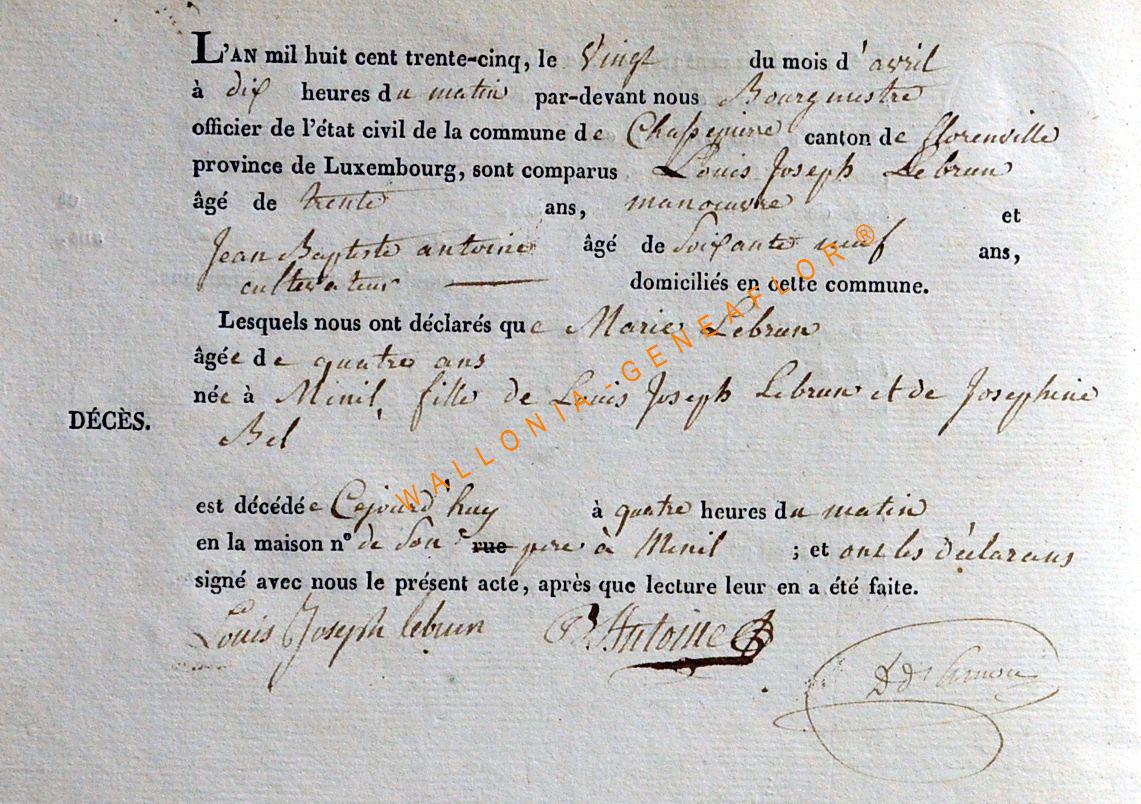 L'AN mil huit cent trente-cinq, le Vingt du mois d'avril
à dix heures du matin par-devant nous Bourgmestre
officier de l'état civil de la commune de Chassepierre canton de florenville
province de Luxembourg, sont comparus Louis Joseph Lebrun
âgé de trente ans, manoeuvre et
Jean Baptiste antoine âgé de Soixante neuf ans,
cultivateur domiciliés en cette commune.
Lesquels nous ont déclarés que Marie Lebrun
âgée de quatre ans
née à Minil, fille de Louis Joseph Lebrun et de Josephine
DÉCÈS.
Bel
est décédée Cejourd'huy à quatre heures du matin
en la maison n° de Son rue pere à Minil ; et ont les déclarans
signé avec nous le présent acte, après que lecture leur en a été faite.
Louis Joseph lebrun Antoine
WALLONIA-GENEAFLOR ®